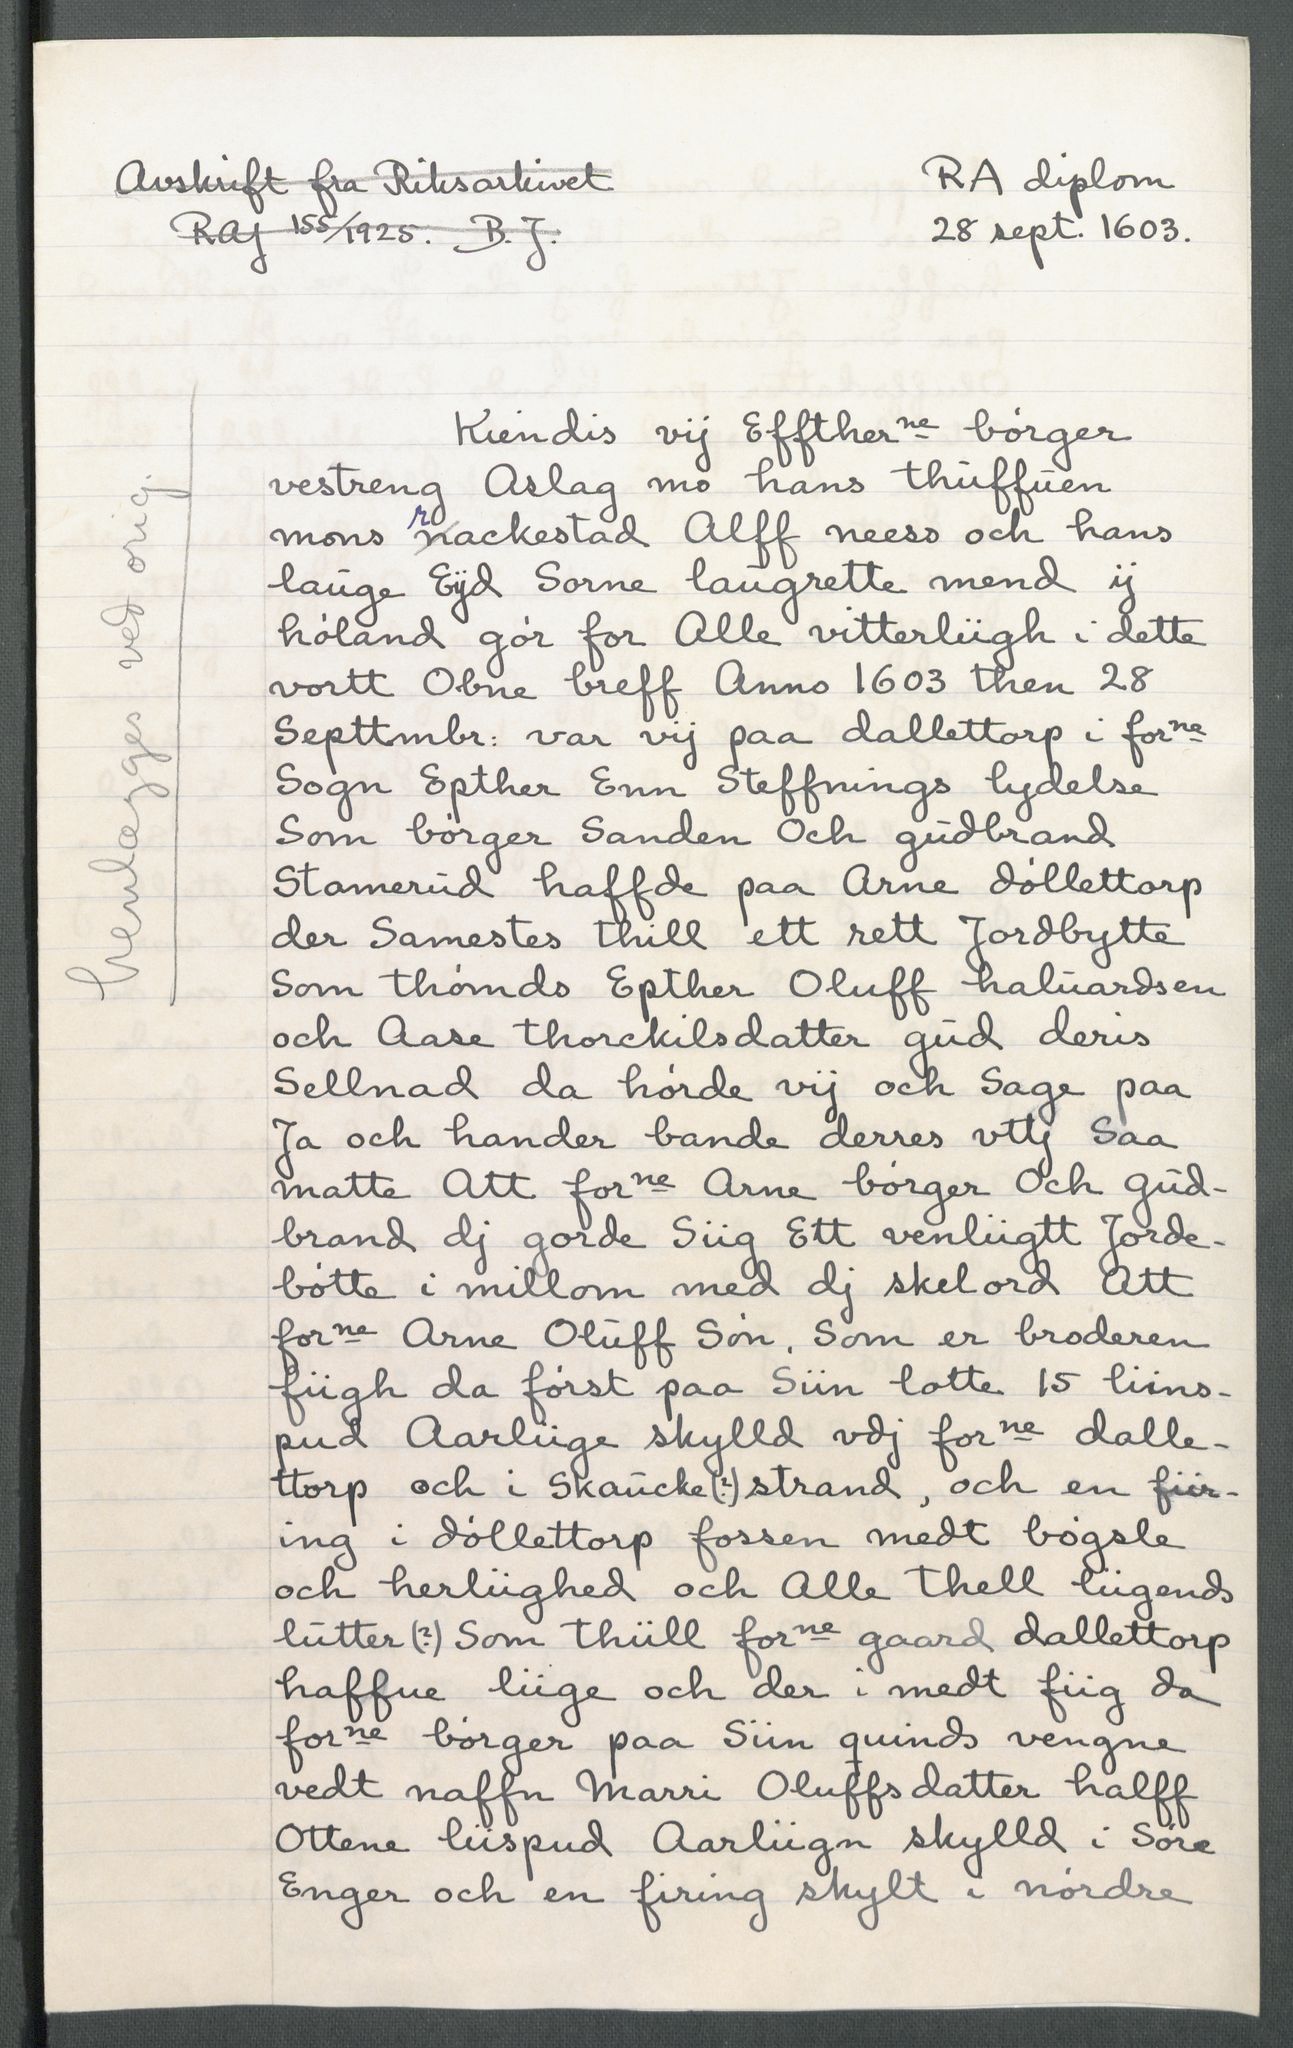 Avskrift fra Riksarkivet
RAJ 155/1925. B. J.
RA diplom
28 sept. 1603.
henlægges ved orig.
Kiendis vij Effther<sup>ne</sup> bórger
vestreng Aslag mo hans thŭffŭen
mons rackestad Alff neess och hans
laŭge Eÿd Sorne laŭgrette mend ij
hóland gór for Alle vitterliigh i dette
vortt Obne breff Anno 1603 then 28
Septtmbr: var vij paa dallettorp i for<sup>ne</sup>
Sogn Epther Enn Steffnings lydelse
Som bórger Sanden Och gŭdbrand
Stamerŭd haffde paa Arne dóllettorp
der Samestes thill ett rett Jordbytte
Som thómds Epther Oluff halŭardsen
och Aase thorckilsdatter gŭd deris
Sellnad da hórde vij och Sage paa
Ja och hander bande derres vttj Saa
matte Att for<sup>ne</sup> Arne bórger Och gŭd-
brand dj gorde Siig Ett venliigtt Jorde-
bótte i millom med dj skelord Att
for<sup>ne</sup> Arne Olŭff Són, Som er broderen
fiigh da fórst paa Siin lotte 15 liins-
pud Aarliige skylld vdj for<sup>ne</sup> dalle-
ttorp och i Skaŭcke(?)strand, och en fiir-
ing i dóllettorp fossen medt bógsle
och herliighed och Alle thell liigends
lŭtter(?) Som thiill for<sup>ne</sup> gaard dallettorp
haffue liige och der i medt fiig da
for<sup>ne</sup> bórger paa Siin quinds vengne
vedt naffn Marri Oluffsdatter halff
Ottene liispud Aarliign skylld i Sóre
Enger och en firing skylt i nórdre